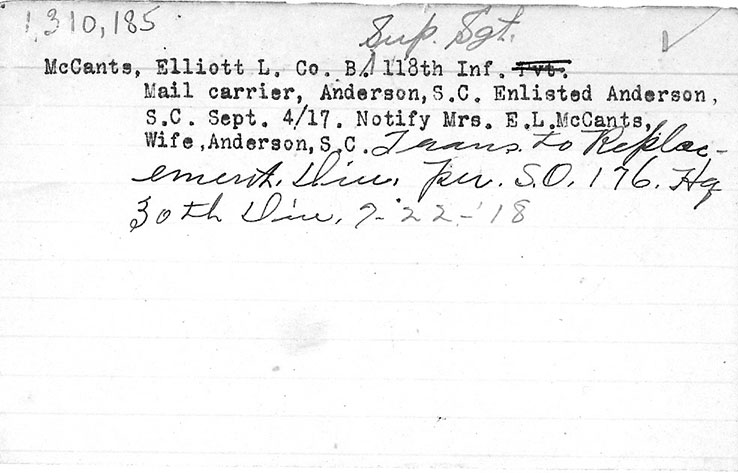 1,310,185
Sup. Sgt.
McCants, Elliott L. Co. B. 118th Inf. Pvt.
Mail carrier, Anderson,S.C. Enlisted Anderson,
S.C. Sept. 4/17. Notify Mrs. E.L.McCants,
Wife,Anderson,S.C. Trans. to Replac-
ement. Div. per. S.O. 176. Hq
30th Div. 7-22-18